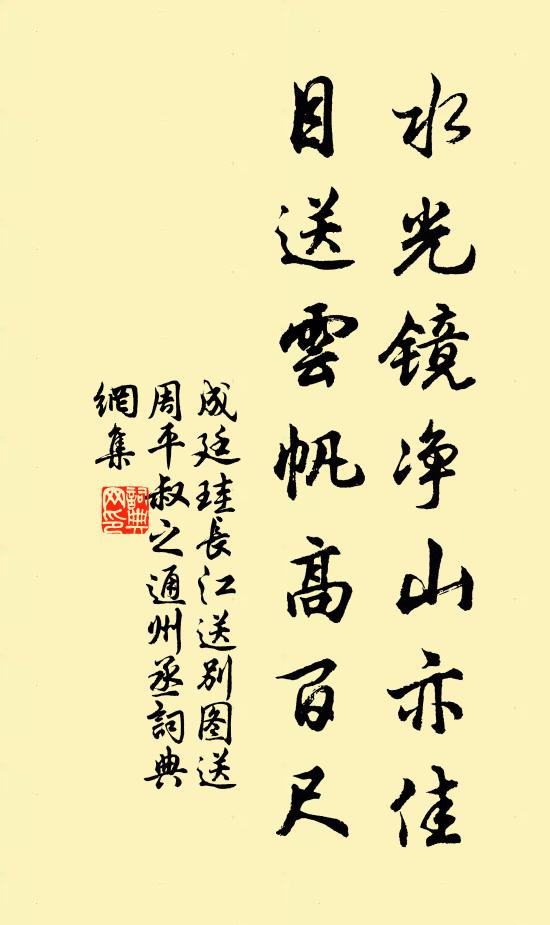 水光镜净山亦佳
目送雲帆高百尺
成廷珪長江送别图送
周平叔之通州丞詞典
網集
詞典
网印